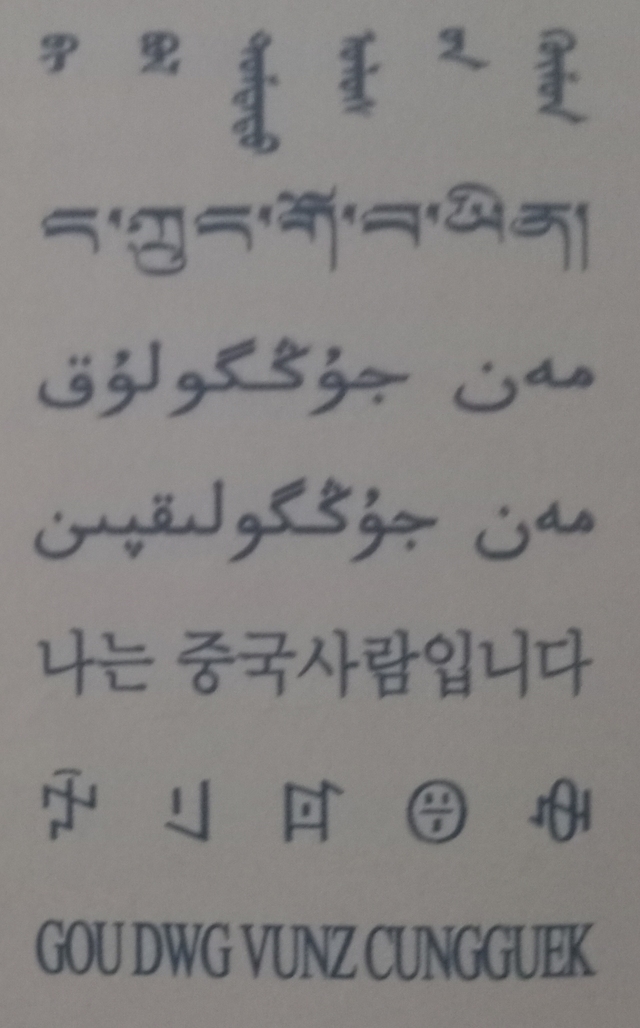 ᠪᠢ ᠪᠣᠯ ᠳᠤᠮᠳᠠᠳᠤ ᠤᠯᠤᠰ ᠤᠨ ᠬᠦᠮᠦᠨ
ང་ཀྲུང་གོ་བ་ཡིན།
مەن جۇڭگولۇق
مەن جۇڭگولىقپىن
나는 중국사람입니다
GOU DWG VUNZ CUNGGUEK